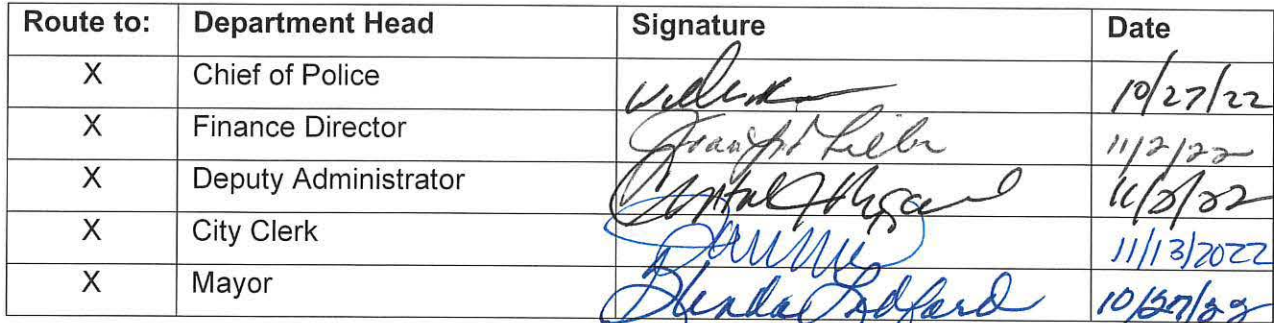 Route to: Department Head Signature Date
X Chief of Police 10/27/22
X Finance Director 11/2/22
X Deputy Administrator
X City Clerk 11/13/2022
X Mayor Brenda Ledford 10/27/22